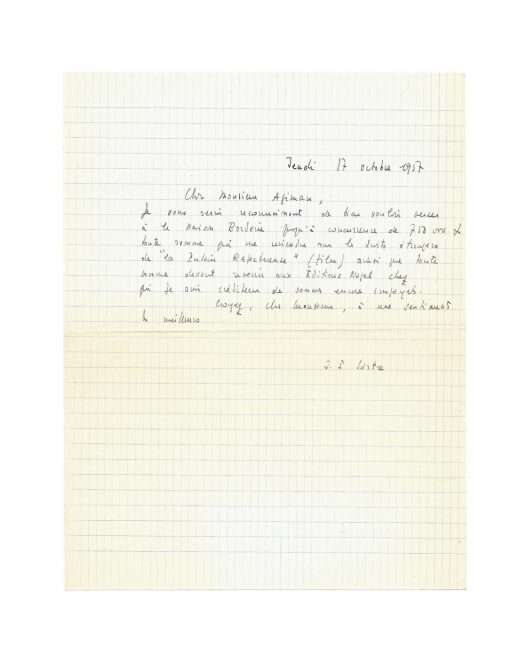 Jeudi 17 octobre 1957
Cher Monsieur Agiman,
Je vous serais reconnaissant de bien vouloir verser
à la Maison Borderie jusqu'à concurrence de 750 000 F
toute somme qui me viendra sur les droits étrangers
de "La Putain Respectueuse" (film) ainsi que toute
somme devant revenir aux Éditions Nagel chez
qui je suis créditeur de sommes encore impayées.
Croyez, cher Monsieur, à mes sentiments
les meilleurs
J. P. Sartre